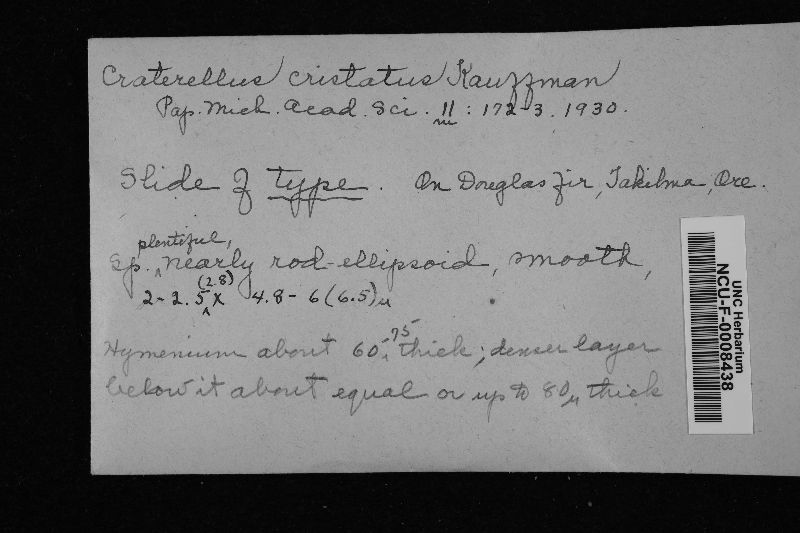 Craterellus cristatus Kauffman
Pap. Mich. Acad. Sci. 11 : 172-3. 1930.
Slide of type. On Douglas fir, Takilma, Ore.
plentiful,
Sp. ^ nearly rod-ellipsoid, smooth,
(2.8)
2-2.5 ^ x 4.8-6 (6.5) µ
Hymenium about 60-75 µ thick; denser layer
below it about equal or up to 80 µ thick
UNC Herbarium
NCU-F-0008438